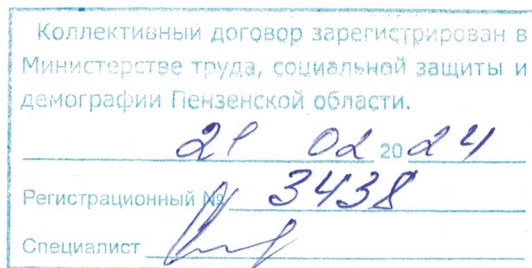 Коллективный договор зарегистрирован в
Министерстве труда, социальной защиты и
демографии Пензенской области.
21 02 20 24
Регистрационный № 3438
Специалист